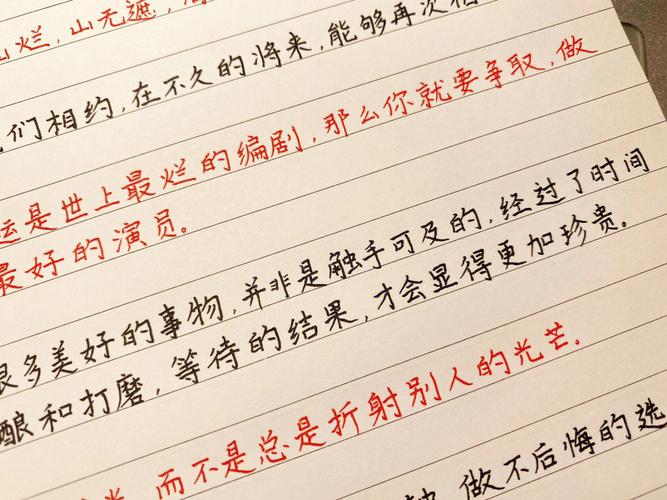 烂，山无遮，
们相约，在不久的将来，能够再次相
运是世上最烂的编剧，那么你就要争取，做
最好的演员。
很多美好的事物，并非是触手可及的，经过了时间
酿和打磨，等待的结果，才会显得更加珍贵。
而不是总是折射别人的光芒。
做不后悔的选